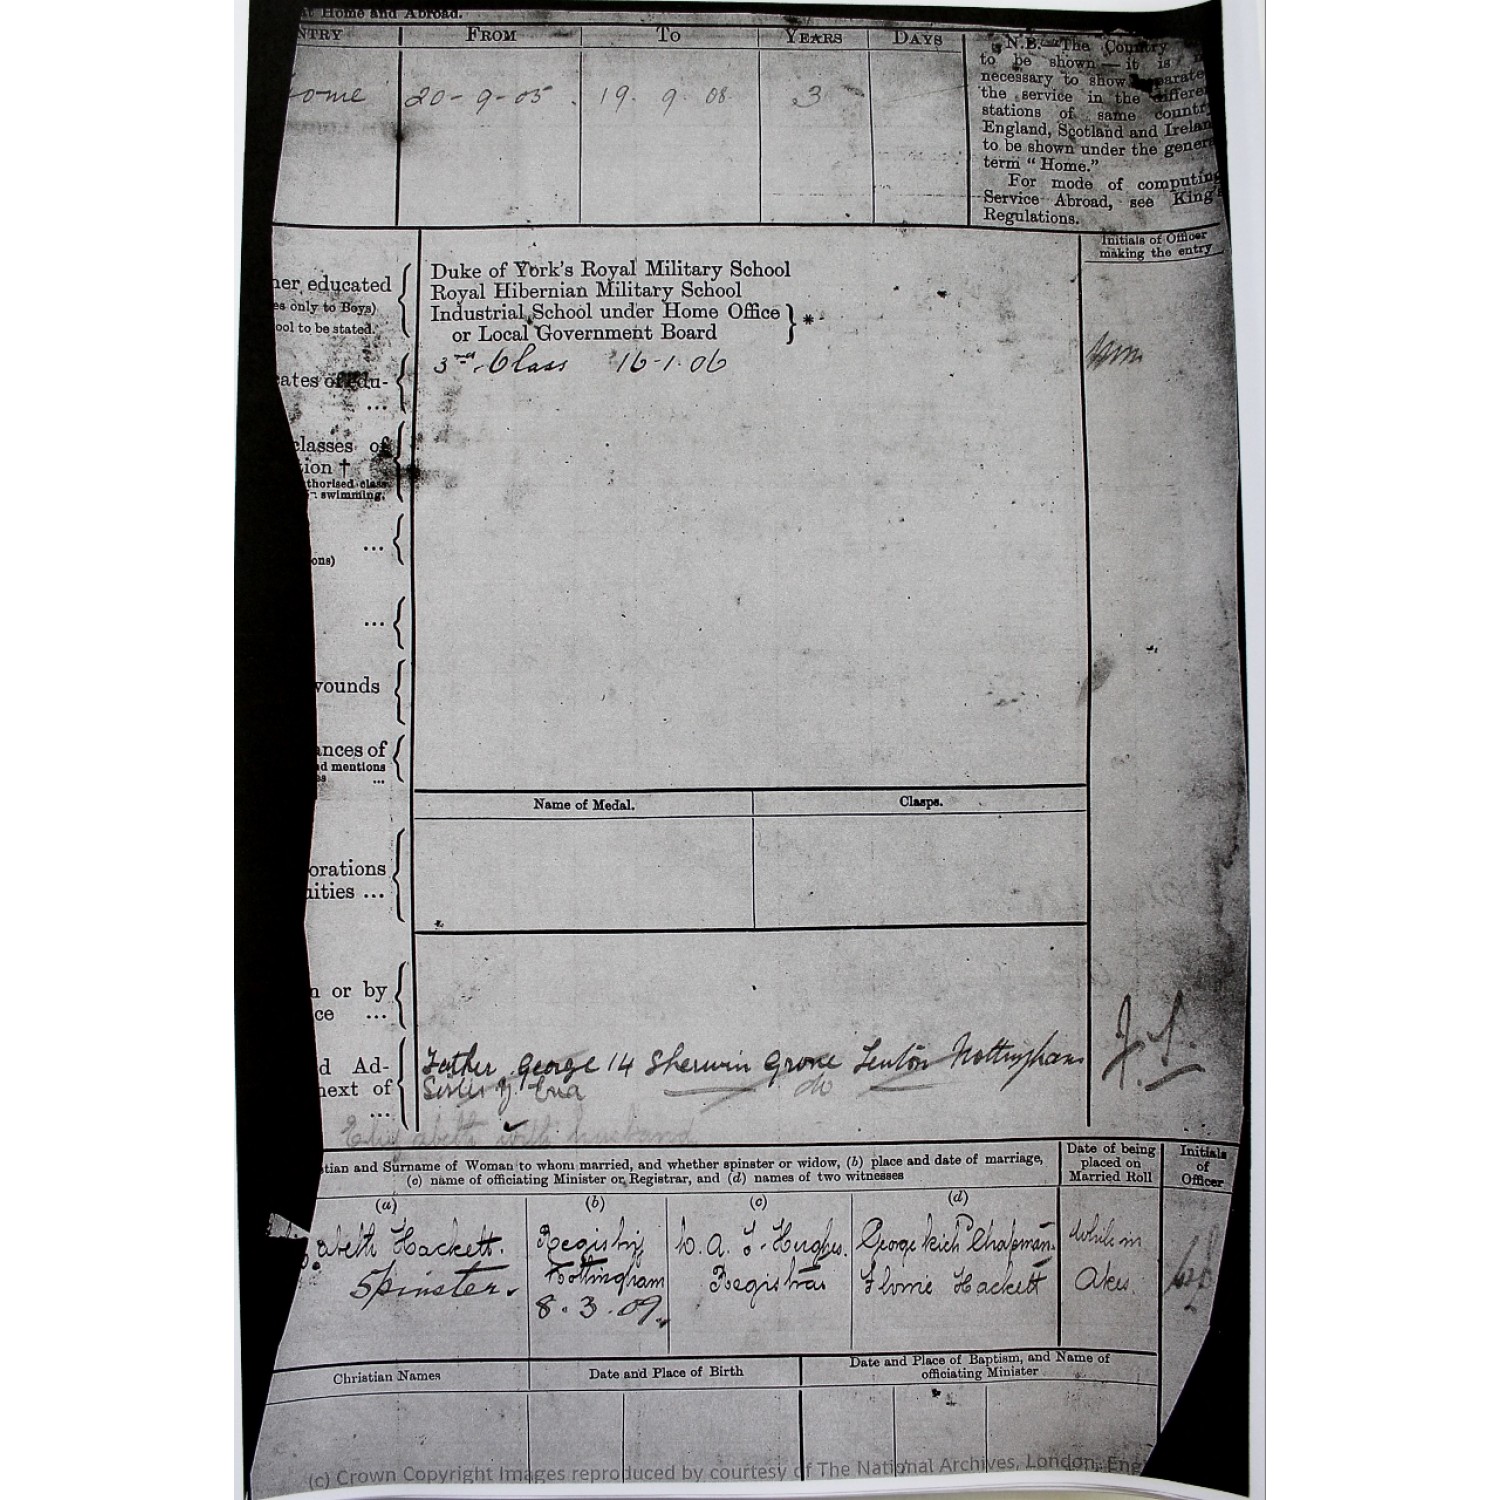 at Home and Abroad.
NTRY FROM TO YEARS DAYS
ome 20-9-05. 19. 9. 08. 3
N.B.—The Country
to be shown—it is
necessary to show
the service in the differen
stations of same countr
England, Scotland and Irelan
to be shown under the genera
term "Home."
For mode of computing
Service Abroad, see King's
Regulations.
Initials of Officer
making the entry
her educated
es only to Boys)
ool to be stated.
Duke of York's Royal Military School
Royal Hibernian Military School
Industrial School under Home Office
or Local Government Board } *
cates of edu-
...
3rd. Class 16-1-06
classes of
tion †
thorised class
swimming.
...
ons)
...
wounds
ances of
nd mentions
es ...
Name of Medal. Clasps.
orations
uities ...
n or by
ce ...
d Ad-
next of
...
Father George 14 Sherwin Grove Lenton Nottingham
Sister Y. Eva do
Elizabeth with husband
J.S.
tian and Surname of Woman to whom married, and whether spinster or widow, (b) place and date of marriage,
(c) name of officiating Minister or Registrar, and (d) names of two witnesses
Date of being
placed on
Married Roll
Initials
of
Officer
(a) (b) (c) (d)
abeth Hackett.
Spinster.
Registry
Nottingham
8. 3. 09.
Hughes.
Registrar
George Chapman.
Florrie Hackett
while in
Ares.
Christian Names
Date and Place of Birth
Date and Place of Baptism, and Name of
officiating Minister
(c) Crown Copyright Images reproduced by courtesy of The National Archives, London, Eng